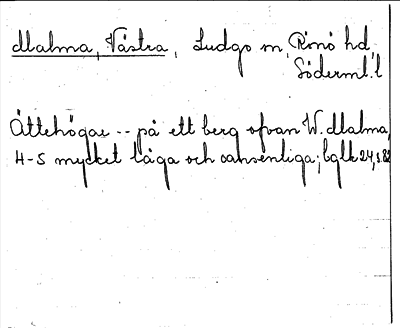 Malma, Västra, Ludgo sn, Rönö hd,
Söderml. l
Ättehögar -- på ett berg ofvan W. Malma,
4-5 mycket låga och oansenliga; bglk 24, s. 82